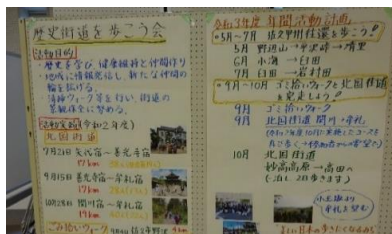 歴史街道を歩こう会
活動目的
・歴史を学び、健康維持と仲間作り
・地域に情報発信し、新たな仲間の
輪を拡げる。
・清掃ウォーク等を行い、街道の
景観保全に努める。
活動実績(令和2年度)
北国街道
7月21日 矢代宿〜善光寺宿
17km
9月15日 善光寺宿〜牟礼宿
10月28日 関川宿〜牟礼宿
17km
ごみ拾いウォーク
令和3年度 年間活動計画
5月〜7月 佐久甲州往還を歩こう!
5月 野辺山→平沢峠→清里
6月 小海→臼田
7月 臼田→岩村田
9月〜10月 ゴミ拾いウォークと北国街道
を完走しよう!
9月 ゴミ拾いウォーク
9月 北国街道 関川→牟礼
10月 北国街道
妙高高原→高田へ